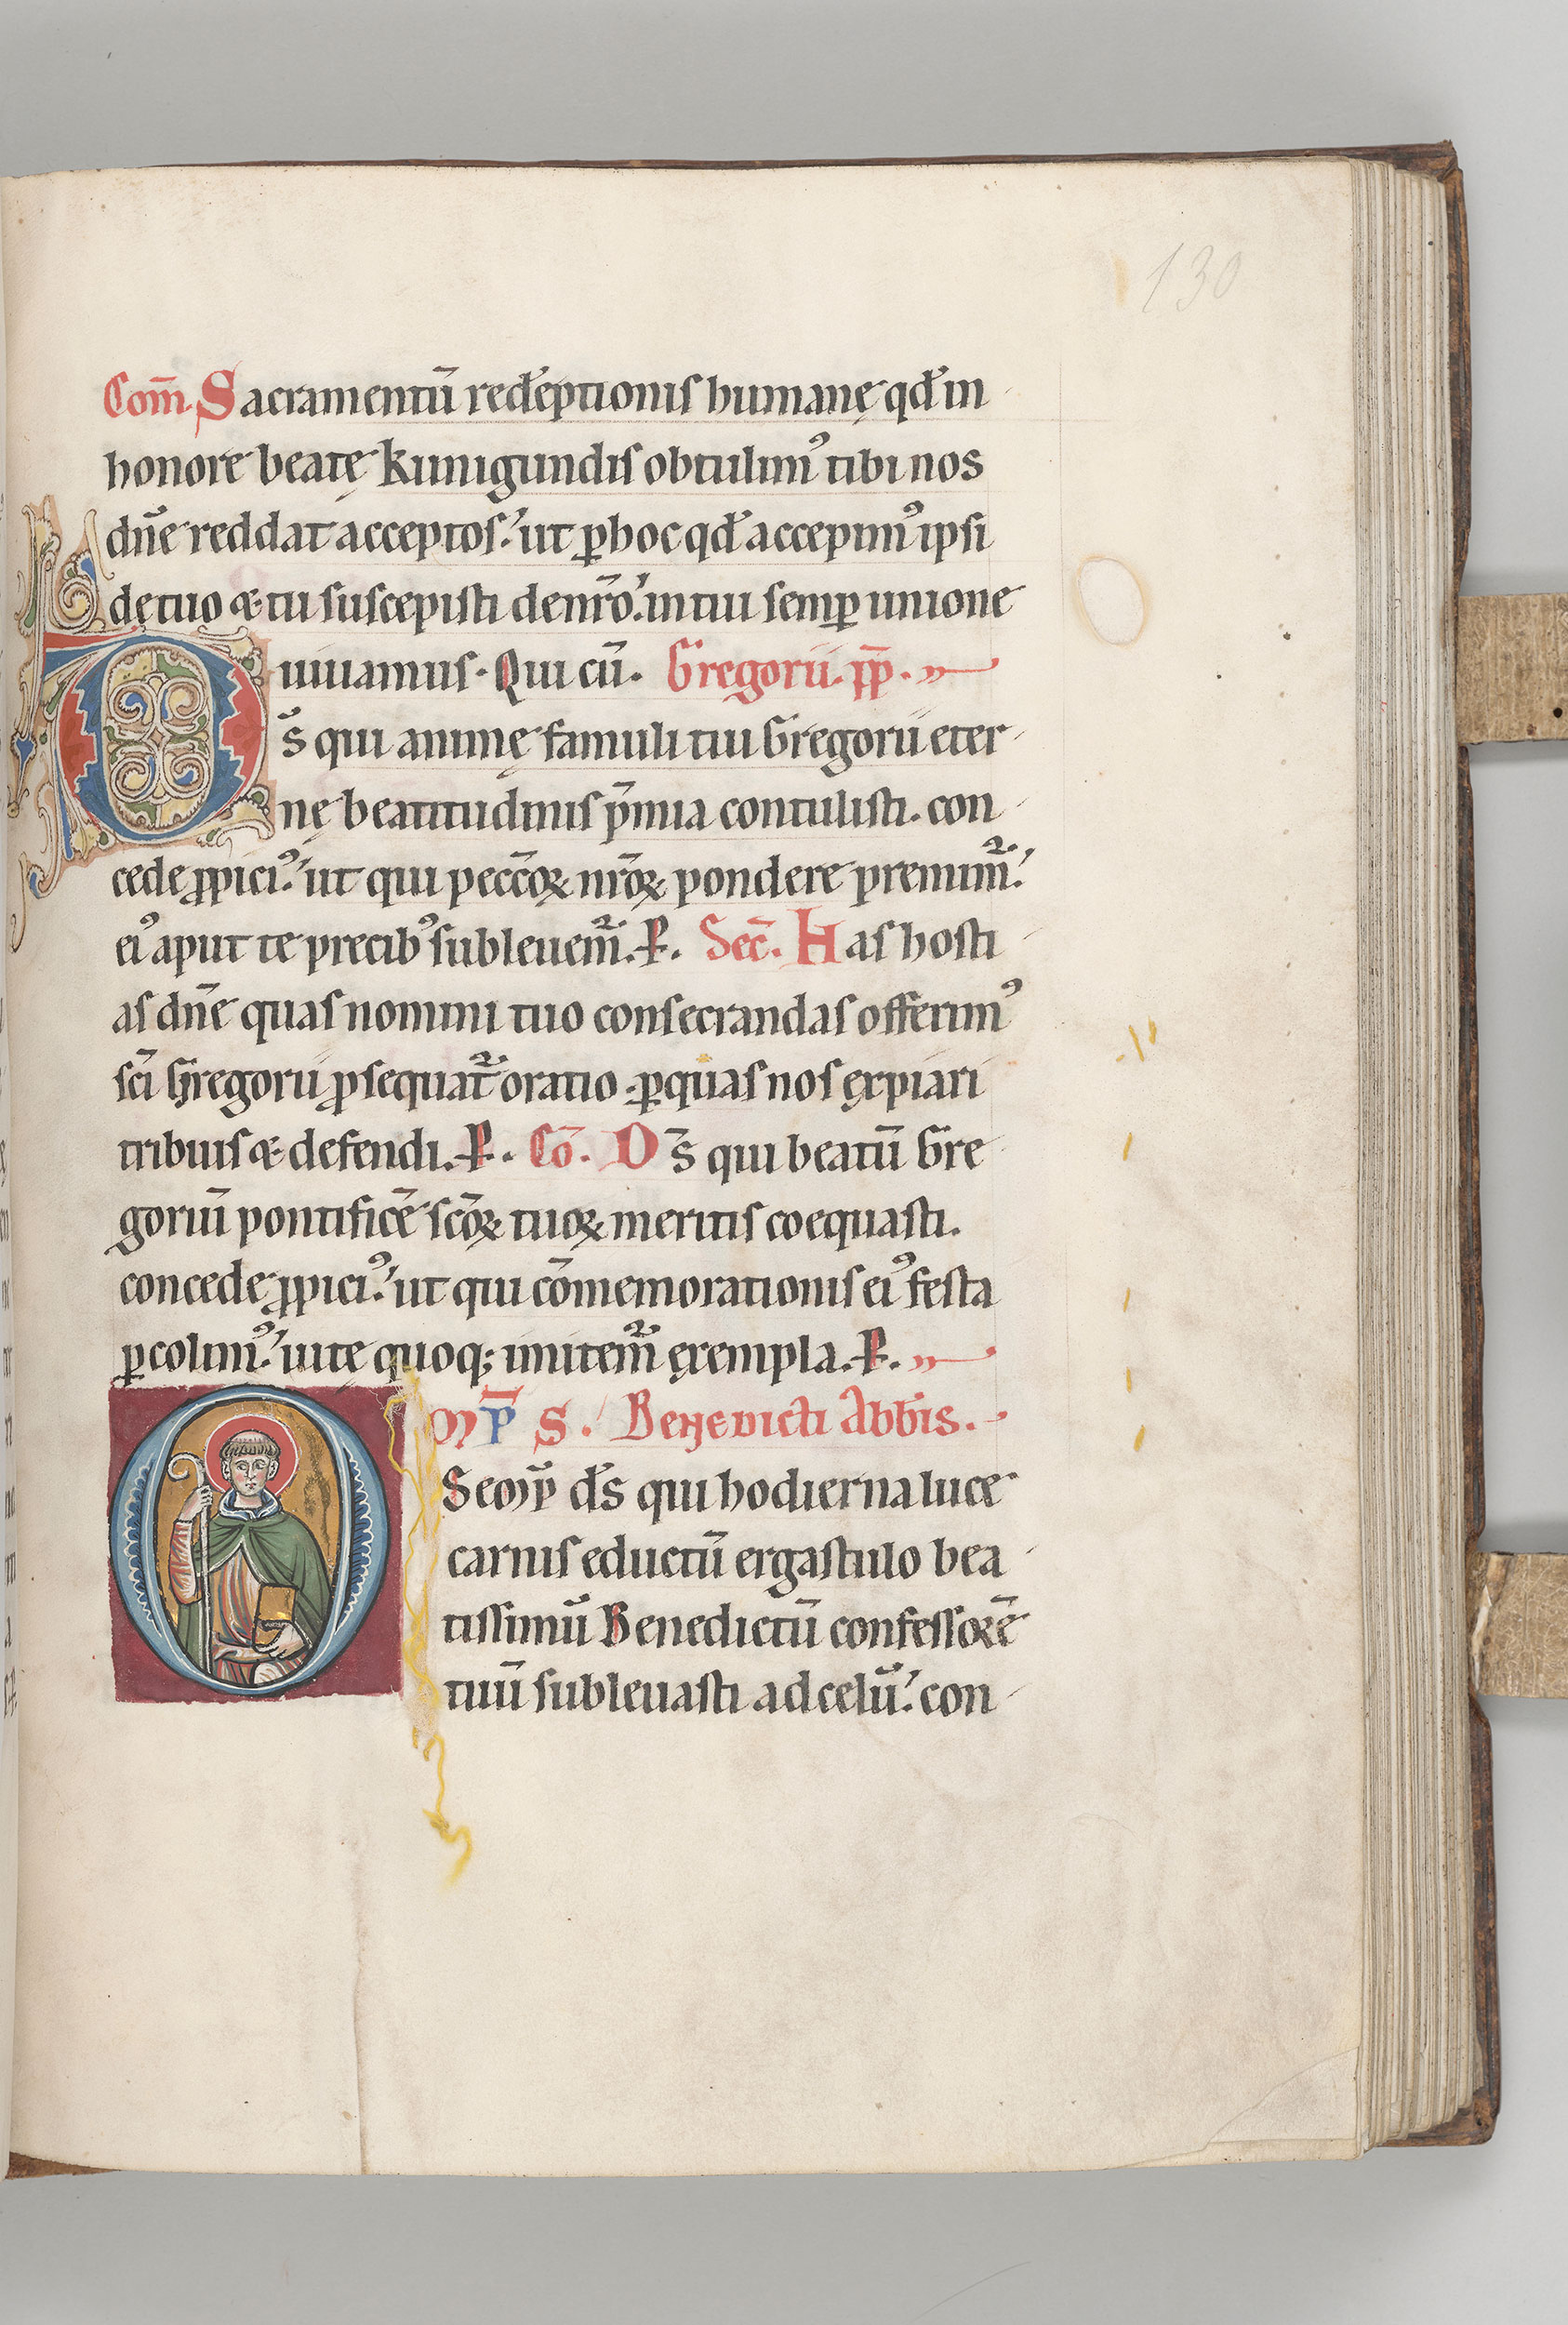 130
Com̄. Sacramentū red̄eptionis humanę qđ in
honore beatę kunigundis obtulimꝰ tibi nos
dn̄e reddat acceptos. ut ꝑ hoc qđ accepimꝰ ipsi
de tuo & tu suscepisti de nr̄o. in tui semꝑ unione
uiuamus. Qui cū. Gregorii. pp̄.
Ds̄ qui animę famuli tui Gregorii eter
nę beatitudinis p̄mia contulisti. con
cede ꝓpiciꝰ. ut qui pecc̄oꝝ nr̄oꝝ pondere premim̄.
eiꝰ aput te precibꝰ subleuem̄. P. Sec̄. Has hosti
as dn̄e quas nomini tuo consecrandas offerimꝰ
sc̄i Gregorii ꝓsequat̄ oratio. ꝑ quas nos ęxpiari
tribuis & defendi. P. Cō. Ds̄ qui beatū Gre
goriū pontificē sc̄oꝝ tuoꝝ meritis coequasti.
concede ꝓpiciꝰ. ut qui cōmemorationis eiꝰ festa
ꝑcolimꝰ. uite quoq; imitem̄ ęxempla. P.
OMP̄ S. Benedicti Abbīs.
Semꝑ ds̄ qui hodierna luce
carnis eductū ergastulo bea
tissimū Benedictū confessorē
tuū subleuasti ad celū. con